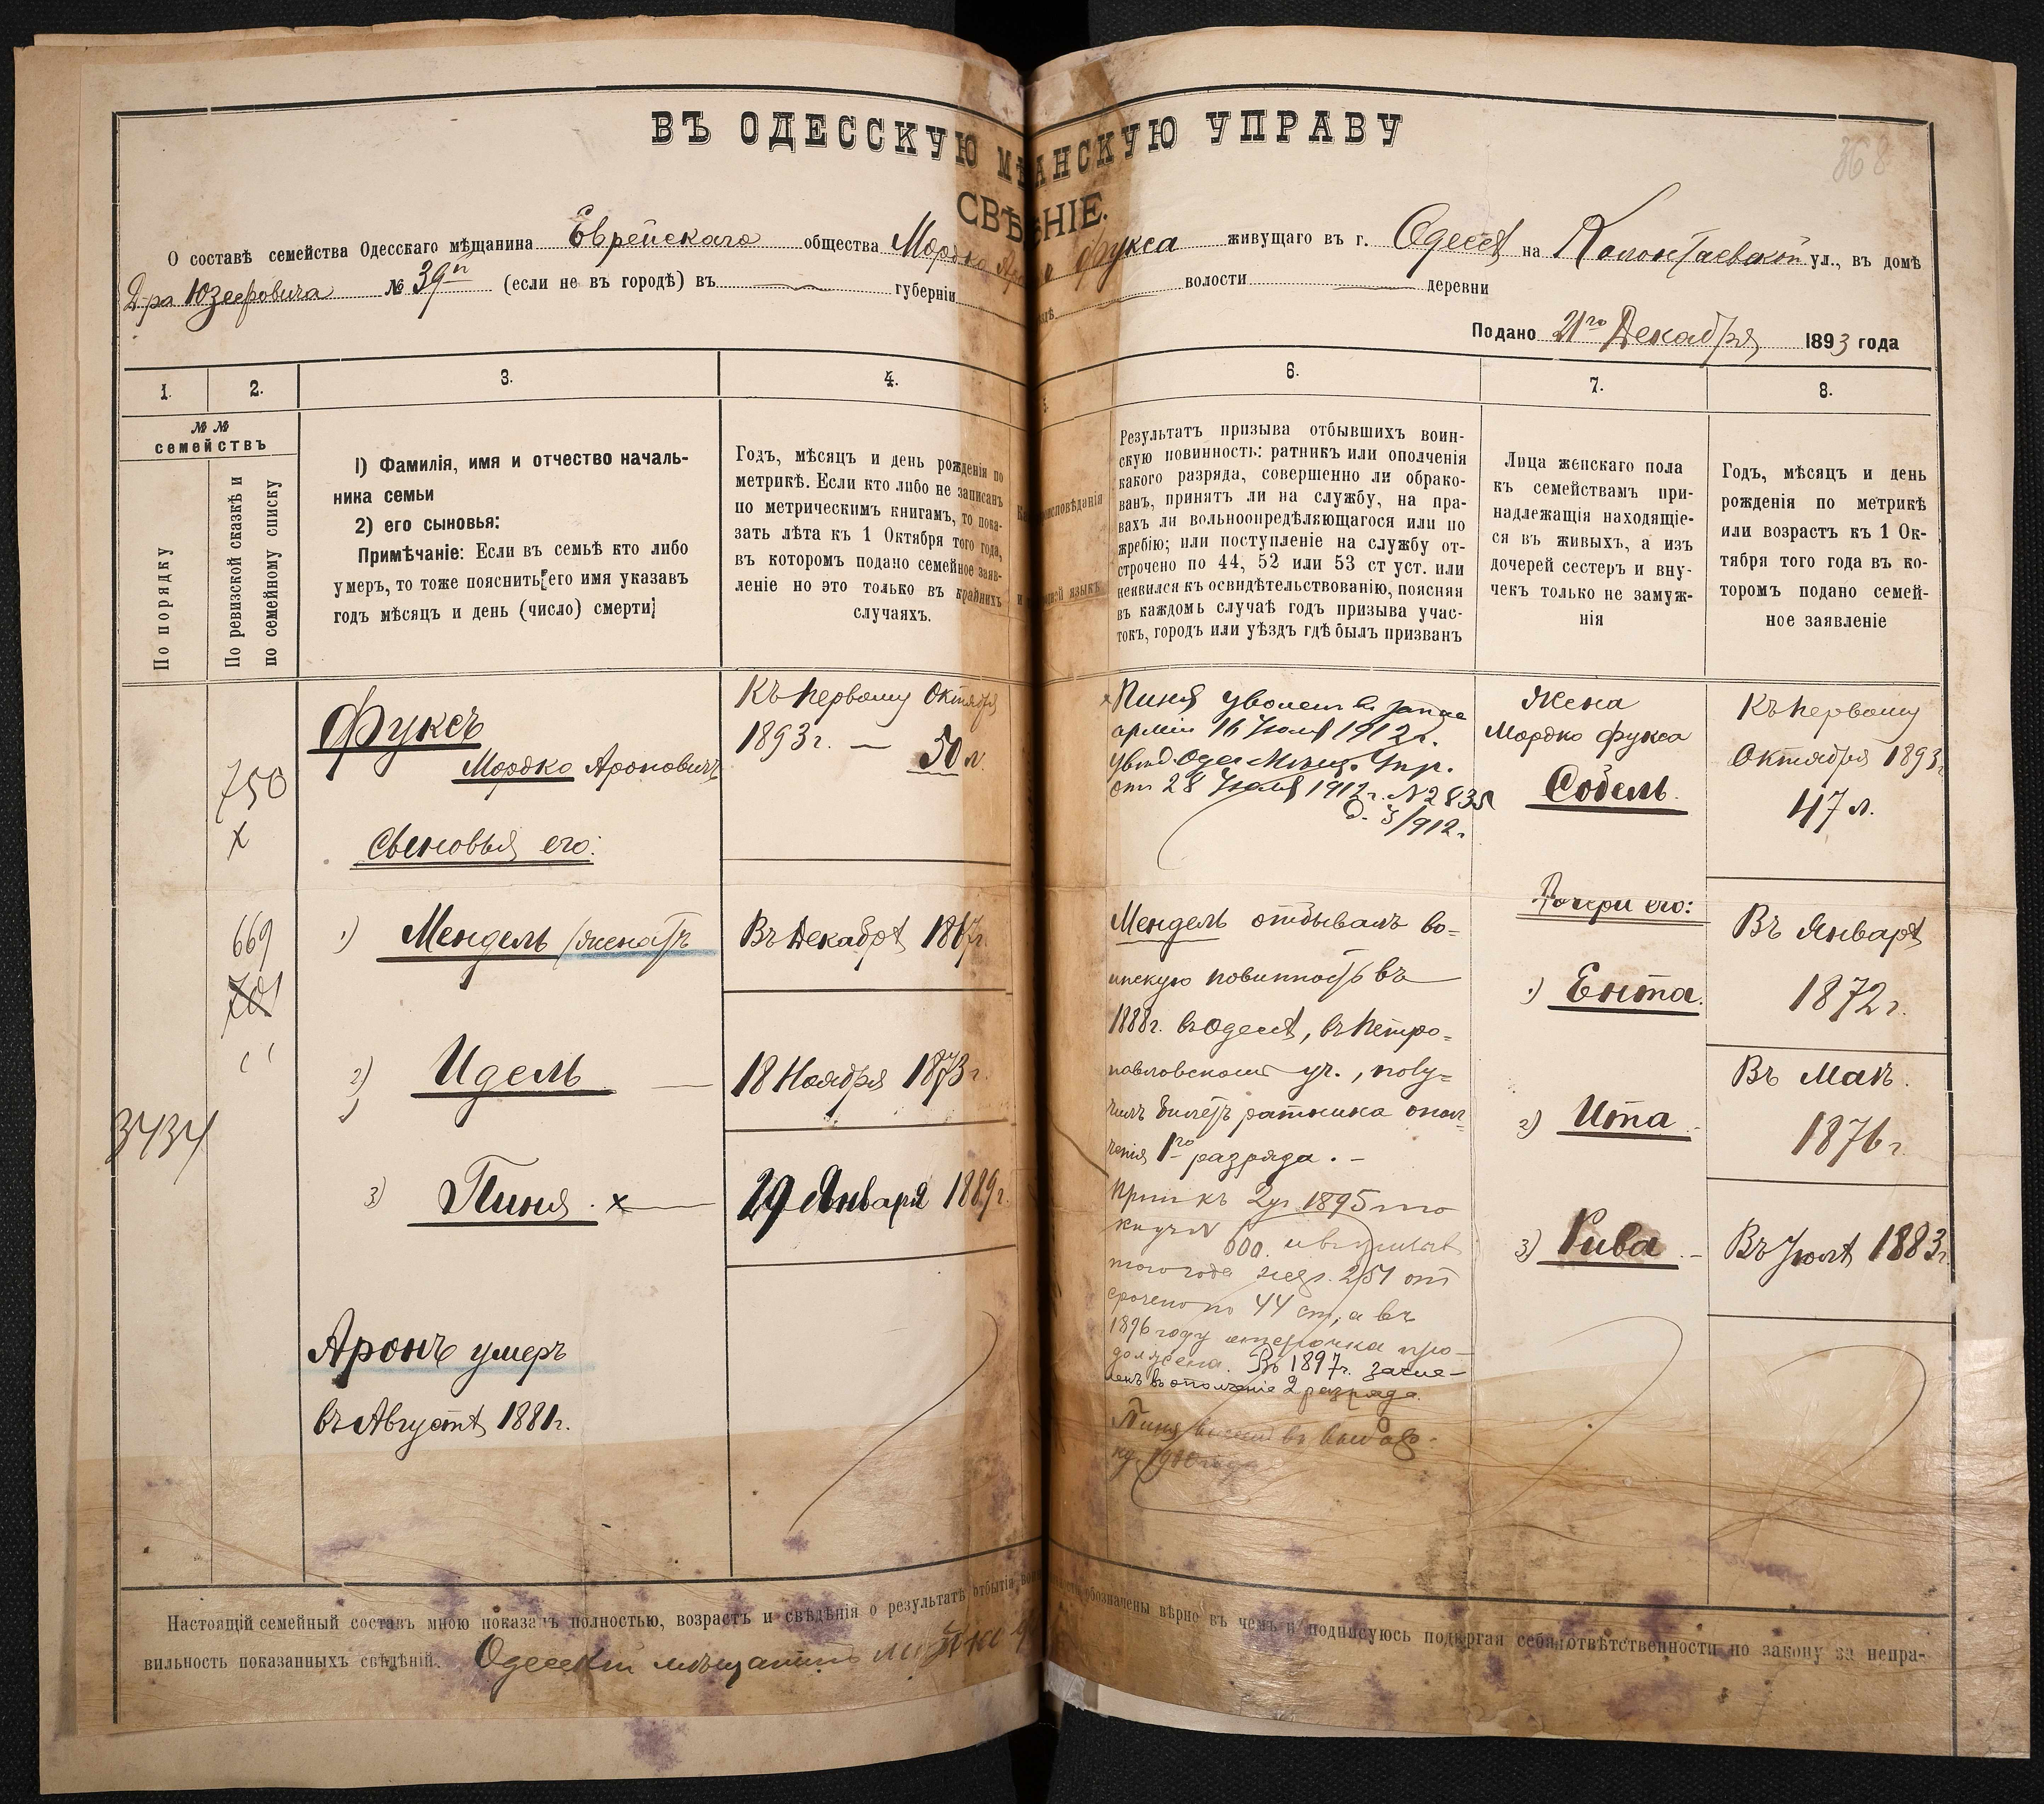 ВЪ ОДЕССКУЮ МѢ АНСКУЮ УПРАВУ
368
СВѢ НІЕ.
О составѣ семейства Одесскаго мѣщанина Еврейскаго общества Мордко Фукса живущаго въ г. Одессѣ на Колонтаевской ул., въ домѣ
Д-ра Юзефовича № 39 (если не въ городѣ) въ губерніи волости деревни
Подано 21го Декабря 1893 года
1. 2. 3. 4. 6. 7. 8.
№ №
семействъ
По порядку
По ревизской сказкѣ и
по семейному списку
1) Фамилія, имя и отчество началь-
ника семьи
2) его сыновья:
Примѣчаніе: Если въ семьѣ кто либо
умеръ, то тоже пояснить[его имя указавъ
годъ мѣсяцъ и день (число) смерти]
Годъ, мѣсяцъ и день рожденія по
метрикѣ. Если кто либо не записанъ
по метрическимъ книгамъ, то пока-
зать лѣта къ 1 Октября того года,
въ которомъ подано семейное заяв-
леніе но это только въ крайнихъ
случаяхъ.
Результатъ призыва отбывшихъ воин-
скую повинность: ратникъ или ополченія
какого разряда, совершенно ли обрако-
ванъ, принятъ ли на службу, на пра-
вахъ ли вольноопредѣляющагося или по
жребію; или поступленіе на службу от-
строчено по 44, 52 или 53 ст уст. или
неявился къ освидѣтельствованію, поясняя
въ каждомъ случаѣ годъ призыва учас-
токъ, городъ или уѣздъ гдѣ былъ призванъ
Лица женскаго пола
къ семействамъ при-
надлежащія находящіе-
ся въ живыхъ, а изъ
дочерей сестеръ и вну-
чекъ только не замуж-
нія
Годъ, мѣсяцъ и день
рожденія по метрикѣ
или возрастъ къ 1 Ок-
тября того года въ ко-
торомъ подано семей-
ное заявленіе
750
х
669
701
3434
Фуксъ
Мордко Ароновичъ
Сыновья его:
1) Мендель /женатъ
2) Идель
3) Пиня . х
Аронъ умеръ
въ Августѣ 1881г.
Къ первому Октября
1893г. — 50 л.
Въ Декабрѣ 1867г.
18 Ноября 1873г.
29 Января 1889г.
х Пиня уволенъ въ запас
арміи 16 Іюля 1912г.
увѣд. Одес. Мѣщ. Упр.
отъ 28 Іюля 1912г. № 2835
Д. 3/912г.
Мендель отбывалъ во=
инскую повинность въ
1888г. въ Одессѣ, въ Петро=
павловскомъ уч., полу=
чилъ билетъ ратника опол=
ченія 1го разряда. —
1895
600.
того года 251 от
срочено по 44 ст., а въ
1896 году отсрочка про-
должена. Въ 1897г. зачис-
ленъ въ ополченіе 2 разряда.
Пиня
Жена
Мордко Фукса
Собель
Дочери его:
1) Ента.
2) Ита
3) Рива
Къ первому
Октября 1893г
47 л.
Въ Январѣ
1872г.
Въ Маѣ.
1876г.
Въ Іюлѣ 1883г.
Настоящій семейный составъ мною показанъ полностью, возрастъ и свѣдѣнія о результатѣ отбытія обозначены вѣрно въ чемъ и подписуюсь подвергая себя отвѣтственности по закону за непра-
вильность показанныхъ свѣдѣній. Одесскій мѣщанинъ